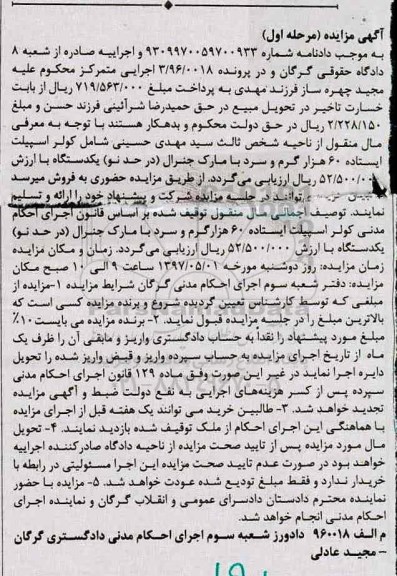 آگهی مزایده (مرحله اول)
به موجب دادنامه شماره ۹۳۰۹۹۷۰۰۵۹۷۰۰۹۳۳ و اجراییه صادره از شعبه ۸
دادگاه حقوقی گرگان و در پرونده ۳/۹۶/۰۰۱۸ اجرایی متمرکز محکوم علیه
مجید چهره ساز فرزند مهدی به پرداخت مبلغ ۷۱۹/۵۶۳/۰۰۰ ریال از بابت
خسارت تاخیر در تحویل مبیع در حق حمیدرضا شرآئینی فرزند حسن و مبلغ
۲/۲۲۸/۱۵۰ ریال در حق دولت محکوم و بدهکار هستند با توجه به معرفی
مال منقول از ناحیه شخص ثالث سید مهدی حسینی شامل کولر اسپیلت
ایستاده ۶۰ هزار گرم و سرد با مارک جنرال (در حد نو) یکدستگاه با ارزش
۵۲/۵۰۰/۰۰۰ ریال ارزیابی می‌گردد. از طریق مزایده حضوری به فروش میرسد
می‌توانند در جلسه مزایده شرکت و پیشنهاد خود را ارائه و تسلیم
نمایند. توصیف اجمالی مال منقول توقیف شده بر اساس قانون اجرای احکام
مدنی کولر اسپیلت ایستاده ۶۰ هزارگرم و سرد با مارک جنرال (در حد نو)
یکدستگاه با ارزش ۵۲/۵۰۰/۰۰۰ ریال ارزیابی می‌گردد. زمان و مکان مزایده
زمان مزایده: روز دوشنبه مورخه ۱۳۹۷/۰۵/۰۱ ساعت ۹ الی ۱۰ صبح مکان
مزایده: دفتر شعبه سوم اجرای احکام مدنی گرگان شرایط مزایده ۱-مزایده از
مبلغی که توسط کارشناس تعیین گردیده شروع و برنده مزایده کسی است که
بالاترین مبلغ را در جلسه مزایده قبول نماید. ۲- برنده مزایده می بایست ۱۰٪
مبلغ مورد پیشنهاد را نقدا به حساب دادگستری واریز و مابقی آن را ظرف یک
ماه از تاریخ اجرای مزایده به حساب سپرده واریز و قبض واریز شده را تحویل
دایره اجرا نماید در غیر این صورت وفق ماده ۱۲۹ قانون اجرای احکام مدنی
سپرده پس از کسر هزینه‌های اجرایی به نفع دولت ضبط و آگهی مزایده
تجدید خواهد شد. ۳- طالبین خرید می توانند یک هفته قبل از اجرای مزایده
با هماهنگی این اجرای احکام از ملک توقیف شده بازدید نمایند. ۴- تحویل
مال مورد مزایده پس از تایید صحت مزایده از ناحیه دادگاه صادرکننده اجراییه
خواهد بود در صورت عدم تایید صحت مزایده این اجرا مسئولیتی در رابطه با
خریدار ندارد و فقط مبلغ تودیع شده عودت خواهد شد. ۵- مزایده با حضور
نماینده محترم دادستان دادسرای عمومی و انقلاب گرگان و نماینده اجرای
احکام مدنی انجام خواهد شد.
م الف ۹۶۰۰۱۸ دادورز شعبه سوم اجرای احکام مدنی دادگستری گرگان
– مجید عادلی